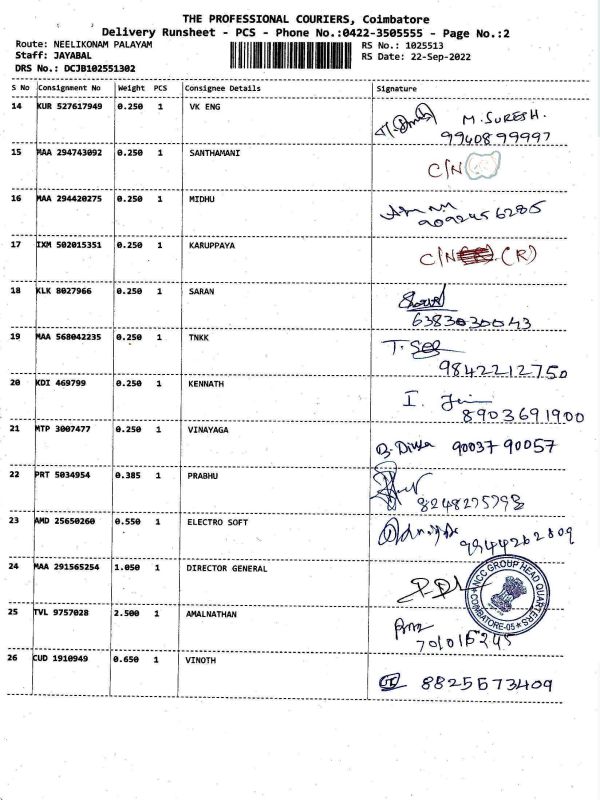 THE PROFESSIONAL COURIERS, Coimbatore
Delivery Runsheet - PCS - Phone No.:0422-3505555 - Page No.:2
Route: NEELIKONAM PALAYAM RS No.: 1025513
Staff: JAYABAL RS Date: 22-Sep-2022
DRS No.: DCJB102551302
S No Consignment No Weight PCS Consignee Details Signature
14 KUR 527617949 0.250 1 VK ENG M. SURESH.
9940899997
15 MAA 294743092 0.250 1 SANTHAMANI C/N
16 MAA 294420275 0.250 1 MIDHU
9092456285
17 IXM 502015351 0.250 1 KARUPPAYA C/N (R)
18 KLK 8027966 0.250 1 SARAN
6383030043
19 MAA 568042235 0.250 1 TNKK
9842212750
20 KDI 469799 0.250 1 KENNATH I.
8903691900
21 MTP 3007477 0.250 1 VINAYAGA 90037 90057
22 PRT 5034954 0.385 1 PRABHU
23 AMD 25650260 0.550 1 ELECTRO SOFT
9944262809
24 MAA 291565254 1.050 1 DIRECTOR GENERAL
NCC GROUP HEAD QUARTERS
COIMBATORE-05
25 TVL 9757028 2.500 1 AMALNATHAN
26 CUD 1910949 0.650 1 VINOTH 8825573409